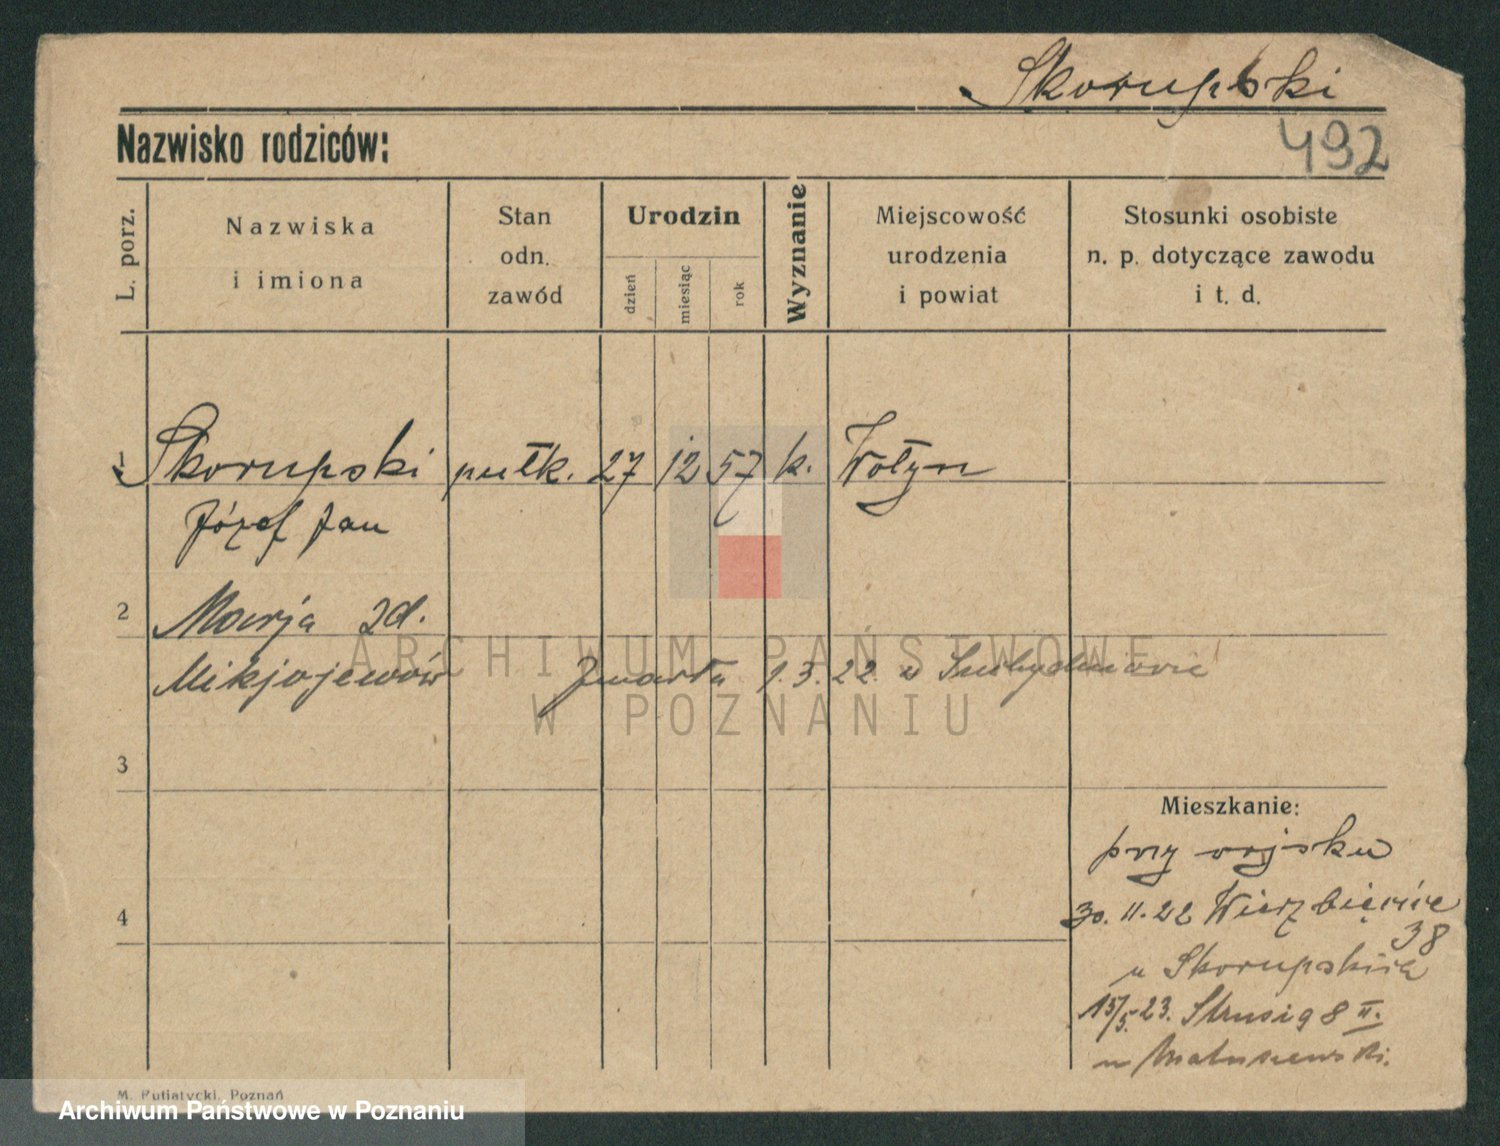 Skorupski
Nazwisko rodziców:
492
L. porz.
Nazwiska
i imiona
Stan
odn.
zawód
Urodzin
dzień
miesiąc
rok
Wyznanie
Miejscowość
urodzenia
i powiat
Stosunki osobiste
n. p. dotyczące zawodu
i t. d.
1 Skorupski pułk. 27 12 57 k. Wołyn
Józef Jan
2 Marja zd.
Mikjojewów Zmarła 1.3.22 w
ARCHIWUM PAŃSTWOWE
W POZNANIU
3
Mieszkanie:
przy wojsku
4
30. 11. 22 Wierzbięcice
38
u Skorupskich
15/5. 23. Strusia 8 II.
u Matuszewski.
M. Putiatycki, Poznań
Archiwum Państwowe w Poznaniu